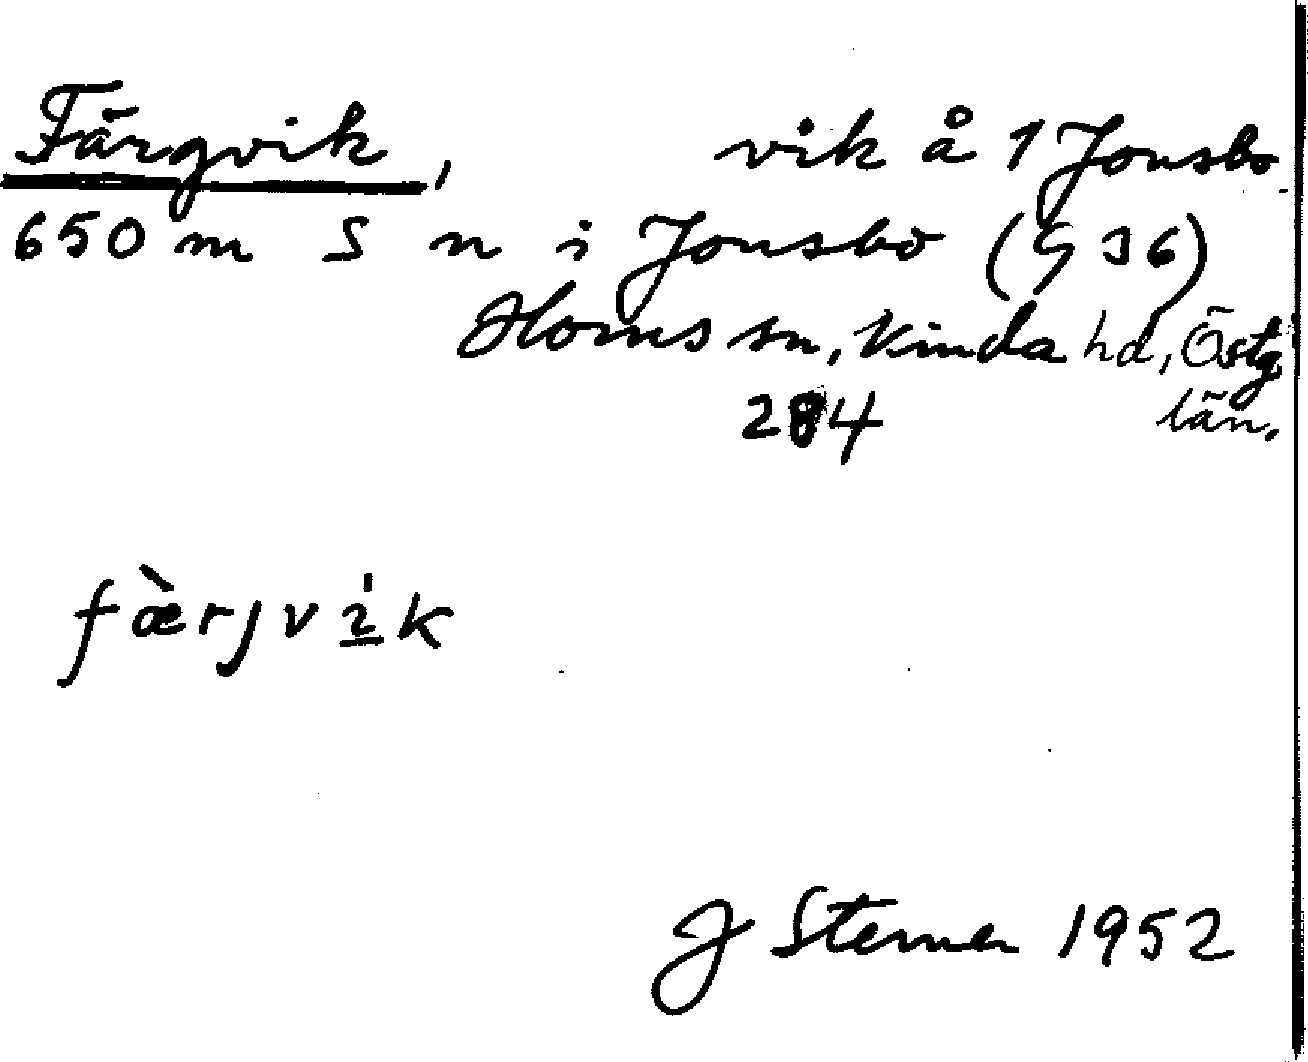 Färgvik, vik å 1 Jonsbo
650 m S n i Jonsbo (G 36)
Horns sn, Kinda hd, Östg.
284 län.
fæ̀rjvi̲k
J Sterner 1952